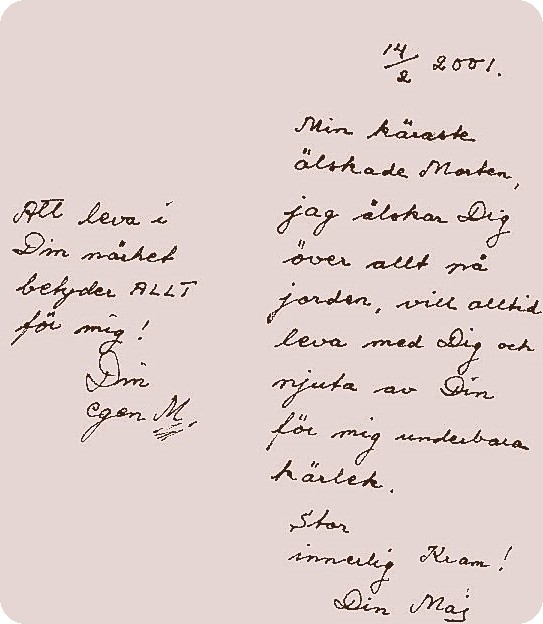 14/2 2001.
Min käraste
älskade Morten,
jag älskar Dig
över allt på
jorden, vill alltid
leva med Dig och
njuta av Din
för mig underbara
kärlek.
Stor
innerlig Kram!
Din Maj
Att leva i
Din närhet
betyder ALLT
för mig!
Din
egen M.